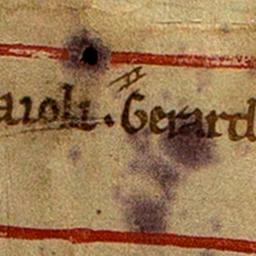 aioli. Gerard